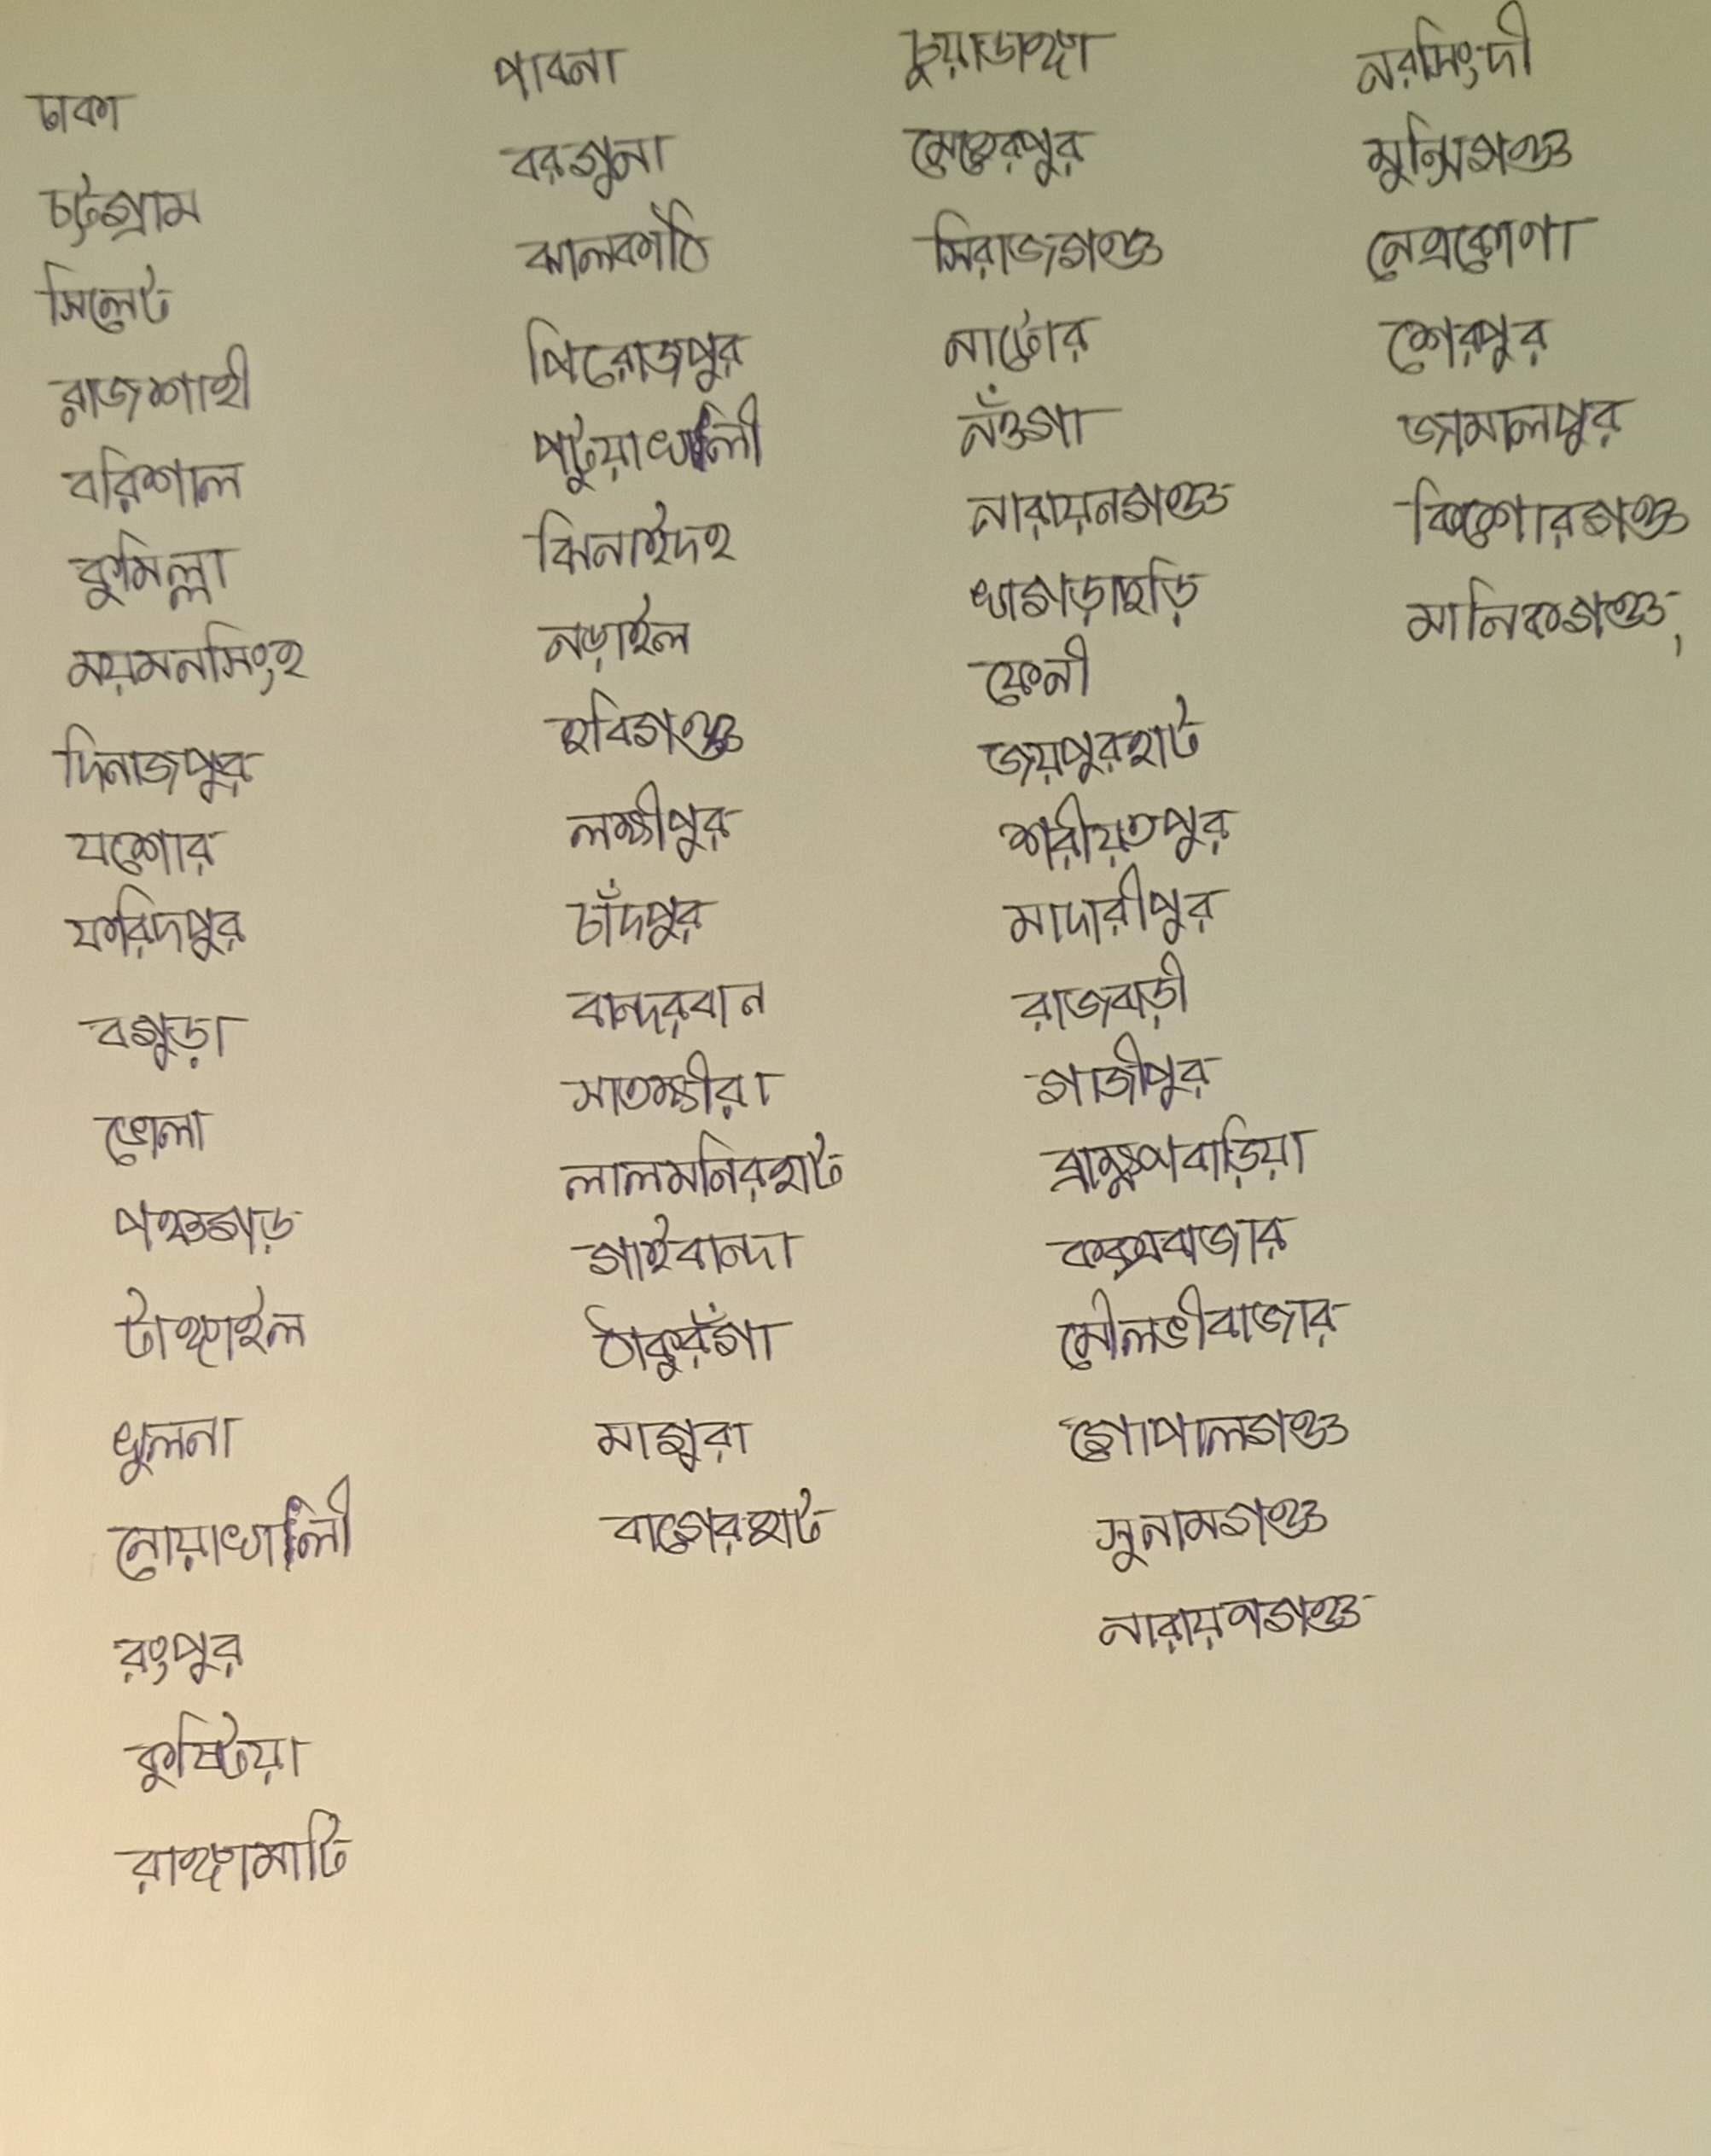 ঢাকা
চট্টগ্রাম
সিলেট
রাজশাহী
বরিশাল
কুমিল্লা
ময়মনসিংহ
দিনাজপুর
যশোর
ফরিদপুর
বগুড়া
ভোলা
পঞ্চগড়
টাঙ্গাইল
খুলনা
নোয়াখালী
রংপুর
কুষ্টিয়া
রাঙ্গামাটি
পাবনা
বরগুনা
ঝালকাঠি
পিরোজপুর
পটুয়াখালী
ঝিনাইদহ
নড়াইল
হবিগঞ্জ
লক্ষীপুর
চাঁদপুর
বান্দরবান
সাতক্ষীরা
লালমনিরহাট
গাইবান্দা
ঠাকুরগাঁ
মাগুরা
বাগেরহাট
চুয়াডাঙ্গা
মেহেরপুর
সিরাজগঞ্জ
নাটোর
নওঁগা
নারায়নগঞ্জ
খাগড়াছড়ি
ফেনী
জয়পুরহাট
শরীয়তপুর
মাদারীপুর
রাজবাড়ী
গাজীপুর
ব্রাহ্মণবাড়িয়া
কক্সবাজার
মৌলভীবাজার
গোপালগঞ্জ
সুনামগঞ্জ
নারায়ণগঞ্জ
নরসিংদী
মুন্সিগঞ্জ
নেত্রকোণা
শেরপুর
জামালপুর
কিশোরগঞ্জ
মানিকগঞ্জ,